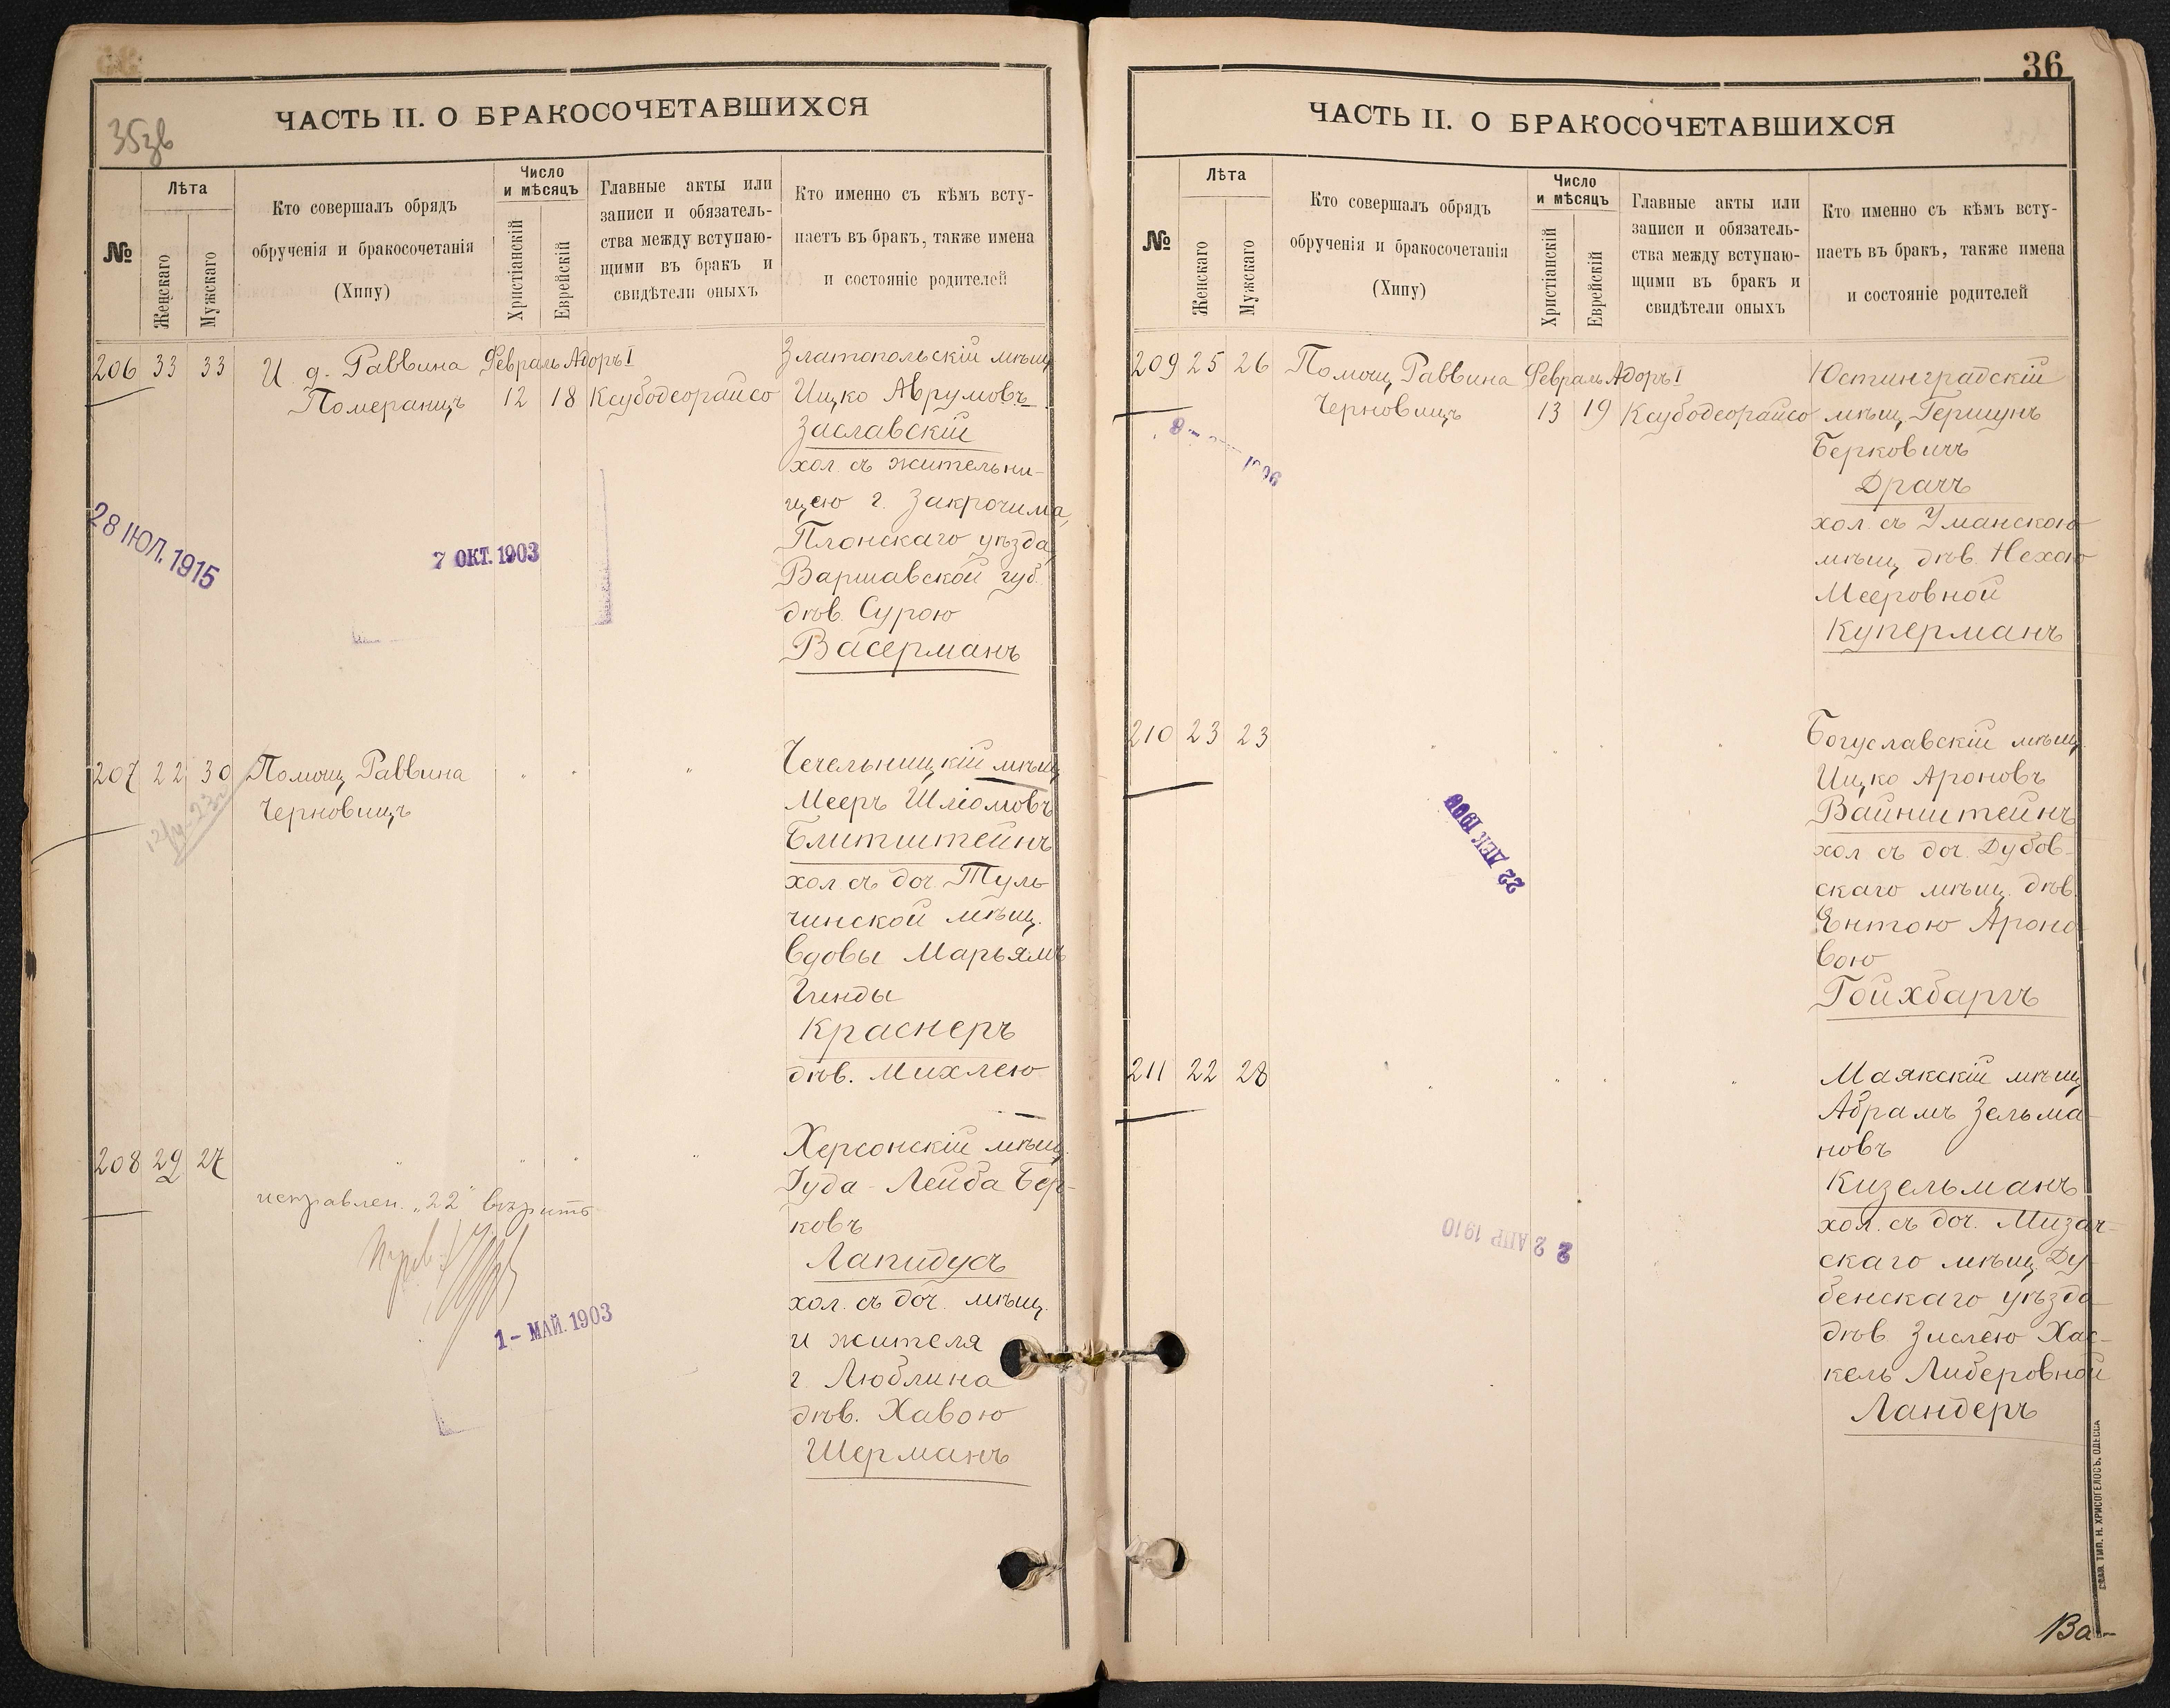 35зв
ЧАСТЬ II. О БРАКОСОЧЕТАВШИХСЯ
№
Лѣта
Женскаго
Мужскаго
Кто совершалъ обрядъ
обрученія и бракосочетанія
(Хипу)
Число
и мѣсяцъ
Христіанскій
Еврейскій
Главные акты или
записи и обязатель-
ства между вступаю-
щими въ бракъ и
свидѣтели оныхъ
Кто именно съ кѣмъ всту-
паетъ въ бракъ, также имена
и состояніе родителей
206 33 33 И. д. Раввина Февраль Адоръ I Златопольскій мѣщ.
Померанцъ 12 18 Ксубодеорайсо Ицко Аврумовъ
Заславскій
хол. съ жительни-
цею г. Закрочима,
Плонскаго уѣзда,
Варшавской губ.
дѣв. Сурою
Васерманъ
28 ІЮЛ. 1915
7 ОКТ. 1903
207 22 30 Помощ. Раввина " " " Чечельницкій мѣщ.
Черновицъ Мееръ Шлiомовъ
Блитштейнъ
хол. съ доч. Туль-
чинской мѣщ.
вдовы Марьямъ
Гинды
Краснеръ
дѣв. Михлею
208 29 27 " " " " Херсонскій мѣщ.
Іуда-Лейба Бер-
ковъ
Лапидусъ
хол. съ доч. мѣщ.
и жителя
г. Люблина
дѣв. Хавою
Шерманъ
исправлен. "22" вѣрить
1 - МАЙ. 1903
36
ЧАСТЬ II. О БРАКОСОЧЕТАВШИХСЯ
№
Лѣта
Женскаго
Мужскаго
Кто совершалъ обрядъ
обрученія и бракосочетанія
(Хипу)
Число
и мѣсяцъ
Христіанскій
Еврейскій
Главные акты или
записи и обязатель-
ства между вступаю-
щими въ бракъ и
свидѣтели оныхъ
Кто именно съ кѣмъ всту-
паетъ въ бракъ, также имена
и состояніе родителей
209 25 26 Помощ. Раввина Февраль Адоръ I Юстинградскій
Черновицъ 13 19 Ксубодеорайсо мѣщ. Гершунъ
Берковичъ
Драчъ
хол. съ Уманскою
мѣщ. дѣв. Нехою
Мееровной
Куперманъ
210 23 23 " " " " Богуславскій мѣщ.
Ицко Ароновъ
Вайнштейнъ
хол. съ доч. Дубов-
скаго мѣщ. дѣв.
Ентою Ароно-
вою
Гойхбаргъ
22 ДЕК 1900
211 22 28 " " " " Маякскій мѣщ.
Абрамъ Зельма-
новъ
Кизельманъ
хол. съ доч. Мизоч-
скаго мѣщ. Ду-
бенскаго уѣзда
дѣв. Зислею Хас-
кель Либеровной
Ландеръ
2 2 АПР 1910
ТИП. Н. ХРИСОГЕЛОСЪ. ОДЕССА
Ва-